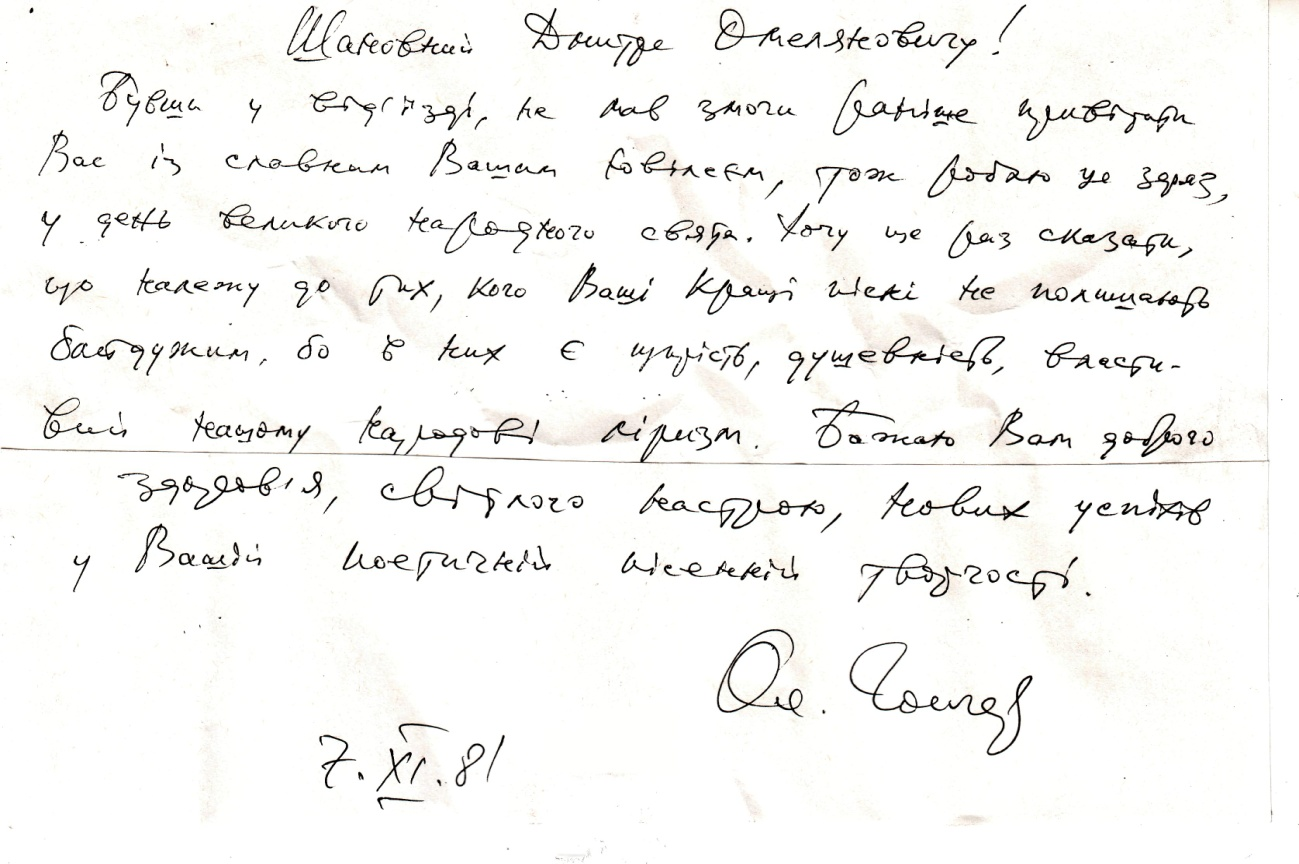 Шановний Дмитре Омеляновичу!
Бувши у від'їзді, не мав змоги раніше привітати
Вас із славним Вашим ювілеєм, тож роблю це зараз,
у день великого народного свята. Хочу ще раз сказати,
що належу до тих, кого Ваші кращі пісні не полишають
байдужим, бо в них є щирість, душевність, власти-
вий нашому народові ліризм. Бажаю Вам доброго
здоров'я, світлого настрою, нових успіхів
у Вашій поетичній пісенній творчості.
Ол. Гончар
7.XI.81